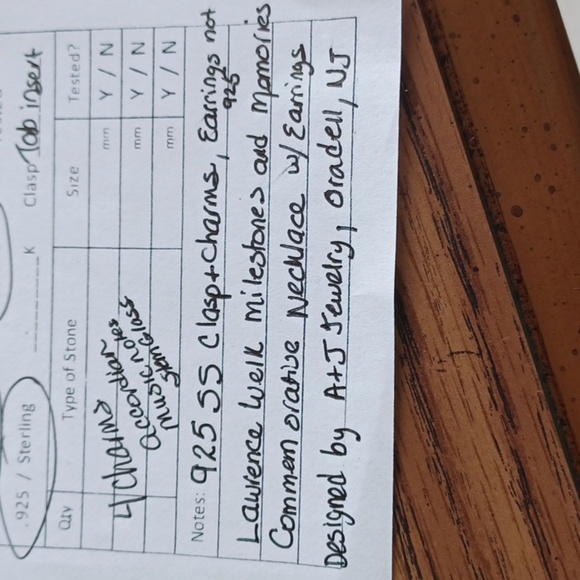 .925 / Sterling K Clasp Tab insert
Qty Type of Stone Size Tested?
mm Y / N
4 charms mm Y / N
accordian mm Y / N
music notes
Notes: 925 SS Clasp + Charms, Earrings not
925
Lawrence Welk Milestones and Memories
Commemorative Necklace w/ Earrings
Designed by A+J Jewelry, Oradell, NJ